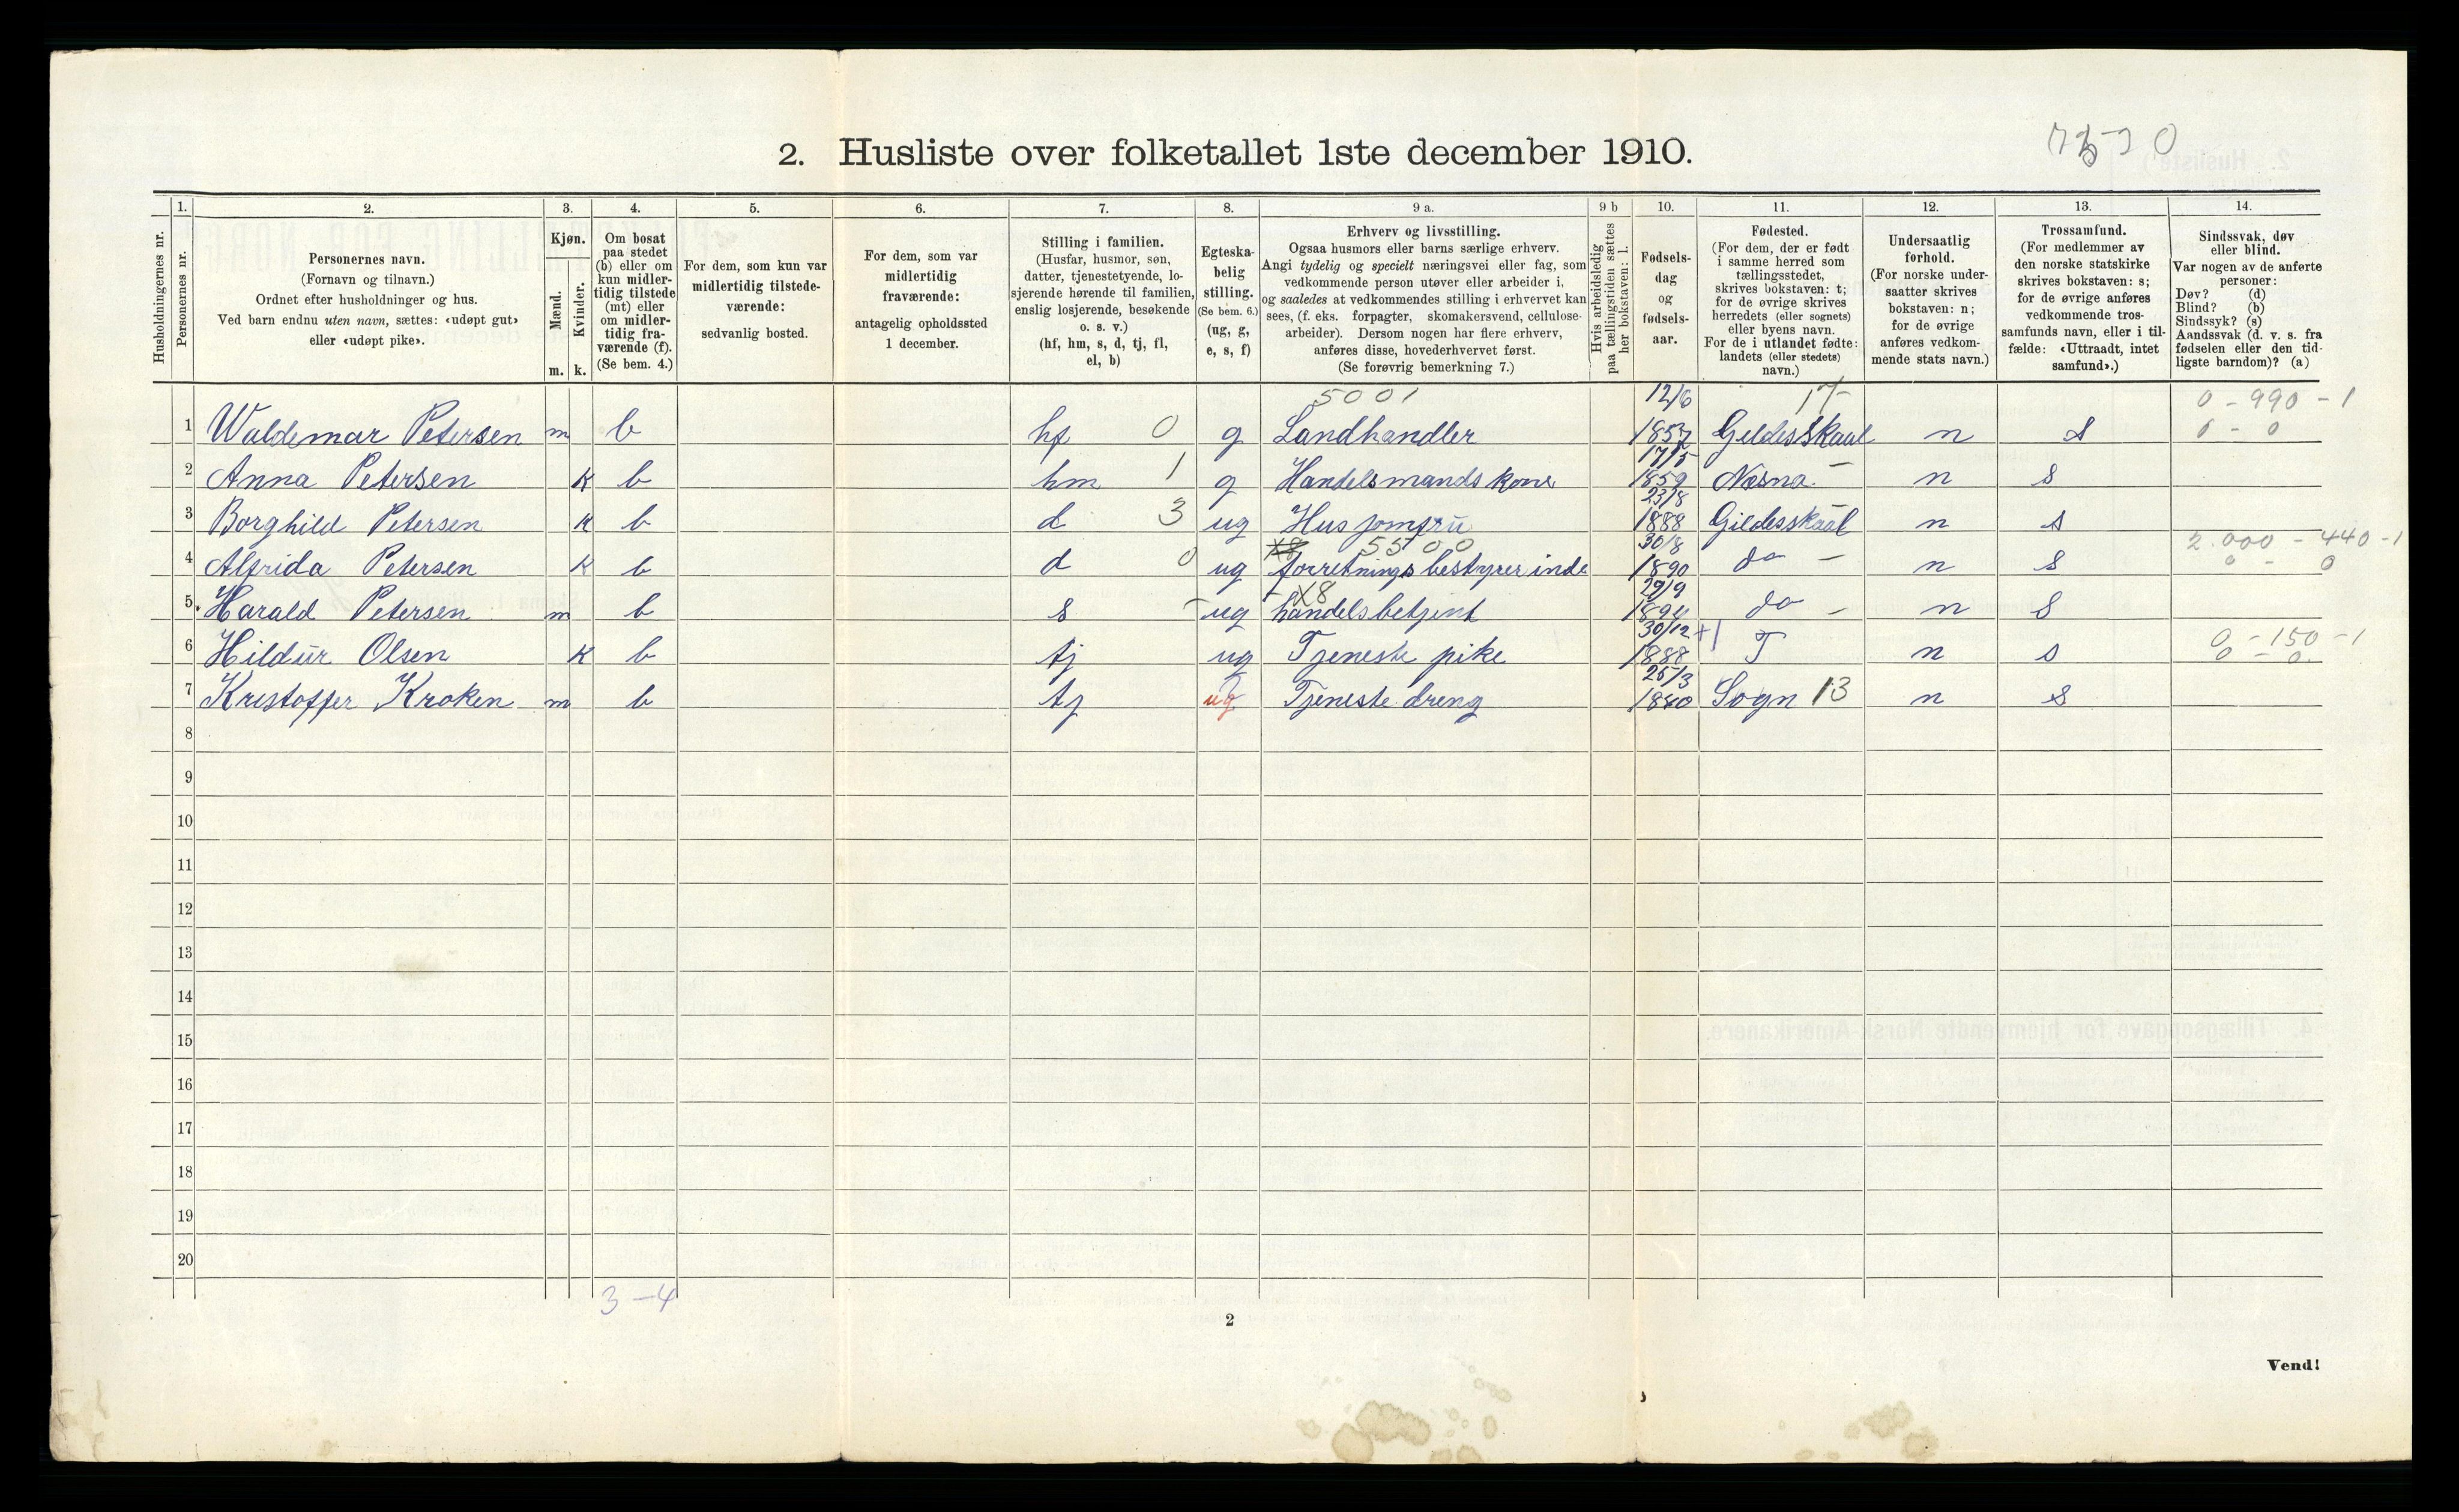 2. Husliste over folketallet 1ste december 1910.
Husholdningernes nr.
1.
Personernes nr.
2.
Personernes navn.
(Fornavn og tilnavn.)
Ordnet efter husholdninger og hus.
Ved barn endnu uten navn, sættes: «udøpt gut»
eller «udøpt pike».
3.
Kjøn.
Mænd.
Kvinder.
m. k.
4.
Om bosat
paa stedet
(b) eller om
kun midler-
tidig tilstede
(mt) eller
om midler-
tidig fra-
værende (f).
(Se bem. 4.)
5.
For dem, som kun var
midlertidig tilstede-
værende:
sedvanlig bosted.
6.
For dem, som var
midlertidig
fraværende:
antagelig opholdssted
1 december.
7.
Stilling i familien.
(Husfar, husmor, søn,
datter, tjenestetyende, lo-
sjerende hørende til familien,
enslig losjerende, besøkende
o. s. v.)
(hf, hm, s, d, tj, fl,
el, b)
8.
Egteska-
belig
stilling.
(Se bem. 6.)
(ug, g,
e, s, f)
9 a.
Erhverv og livsstilling.
Ogsaa husmors eller barns særlige erhverv.
Angi tydelig og specielt næringsvei eller fag, som
vedkommende person utøver eller arbeider i,
og saaledes at vedkommendes stilling i erhvervet kan
sees, (f. eks. forpagter, skomakersvend, cellulose-
arbeider). Dersom nogen har flere erhverv,
anføres disse, hovederhvervet først.
(Se forøvrig bemerkning 7.)
9 b
Hvis arbeidsledig
paa tællingstiden sættes
her bokstaven: l.
10.
Fødsels-
dag
og
fødsels-
aar.
11.
Fødested.
(For dem, der er født
i samme herred som
tællingsstedet,
skrives bokstaven: t;
for de øvrige skrives
herredets (eller sognets)
eller byens navn.
For de i utlandet fødte:
landets (eller stedets)
navn.)
12.
Undersaatlig
forhold.
(For norske under-
saatter skrives
bokstaven: n;
for de øvrige
anføres vedkom-
mende stats navn.)
13.
Trossamfund.
(For medlemmer av
den norske statskirke
skrives bokstaven: s;
for de øvrige anføres
vedkommende tros-
samfunds navn, eller i til-
fælde: «Uttraadt, intet
samfund».)
14.
Sindssvak, døv
eller blind.
Var nogen av de anførte
personer:
Døv? (d)
Blind? (b)
Sindssyk? (s)
Aandssvak (d. v. s. fra
fødselen eller den tid-
ligste barndom)? (a)
5001 12/6 17 0 - 990 - 1
1 Waldemar Petersen m b hf 0 g Landhandler Gildesskaal n s 0 - 0
17/5
2 Anna Petersen k b hm 1 g Handelsmands kone 1859 Næsna - n s
23/8
3 Borghild Petersen k b d 3 ug Husjomfru 1888 Gildesskaal n s
5500 30/8 2.000 - 440 - 1
4 Alfrida Petersen k b d 0 ug forretningsbestyrerinde 1890 do - n s 0 - 0
X8 29/9
5 Harald Petersen m b s - ug handelsbetjent 1894 do - n s
30/12 +1 0 - 150 - 1
6 Hildur Olsen k b tj ug Tjeneste pike 1888 T n s 0 - 0
25/3
7 Kristoffer Kroken m b tj ug Tjeneste dreng 1840 Sogn 13 n s
8
9
10
11
12
13
14
15
16
17
18
19
20
3 - 4
2
Vend!